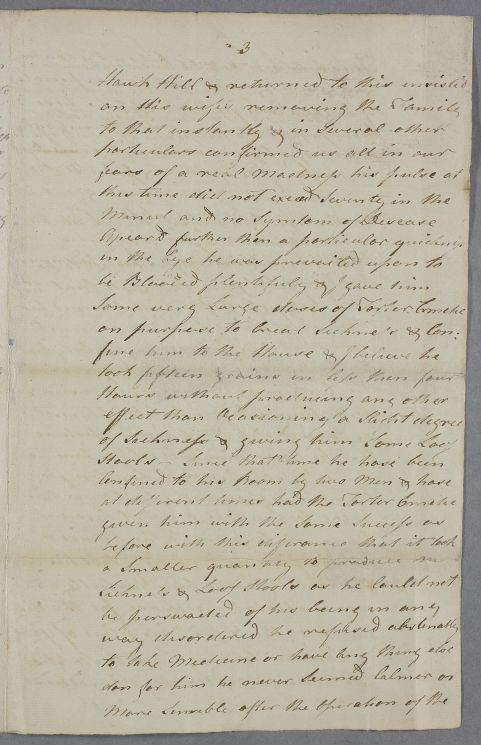 3
Hawk Hill & returned to this insisted
on this wifes removing the Family
to that instantly & in several other
particulars confirmed us all in our
fears of a real Madness his pulse at
this time did not exceed Seventy in the
Minut and no Symtom of Disease
Apeard further than a particular quickness
in the Eye he was prevailed upon to
be Blooded plentifuly & I gave him
Some very Large doses of Torter Emetic
on purpose to Creat Sickne's & Con:
fine him to the House & I believe he
took fifteen grains in less then four
Hours without produceing any other
effect than Ocasioning a Slight degree
of Sickness & giving him Some Loos
Stools – Since that time he hase been
Confined to his Room by two Men & hase
at different times had the Torter Emetic
given him with the Same Sucess as
before with this diferance that it took
a Smaller quantity to produce
& Loos Stools as he Could not
be perswaded of his being in any
way disordered he refused obstinatly
to take Medicine or have any thing else
don for him he never Seemed Calmer or
More Sensible after the Operation of the